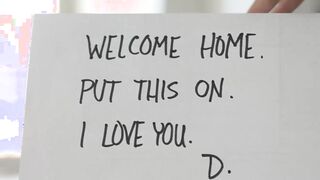 WELCOME HOME.
PUT THIS ON.
I LOVE YOU.
D.